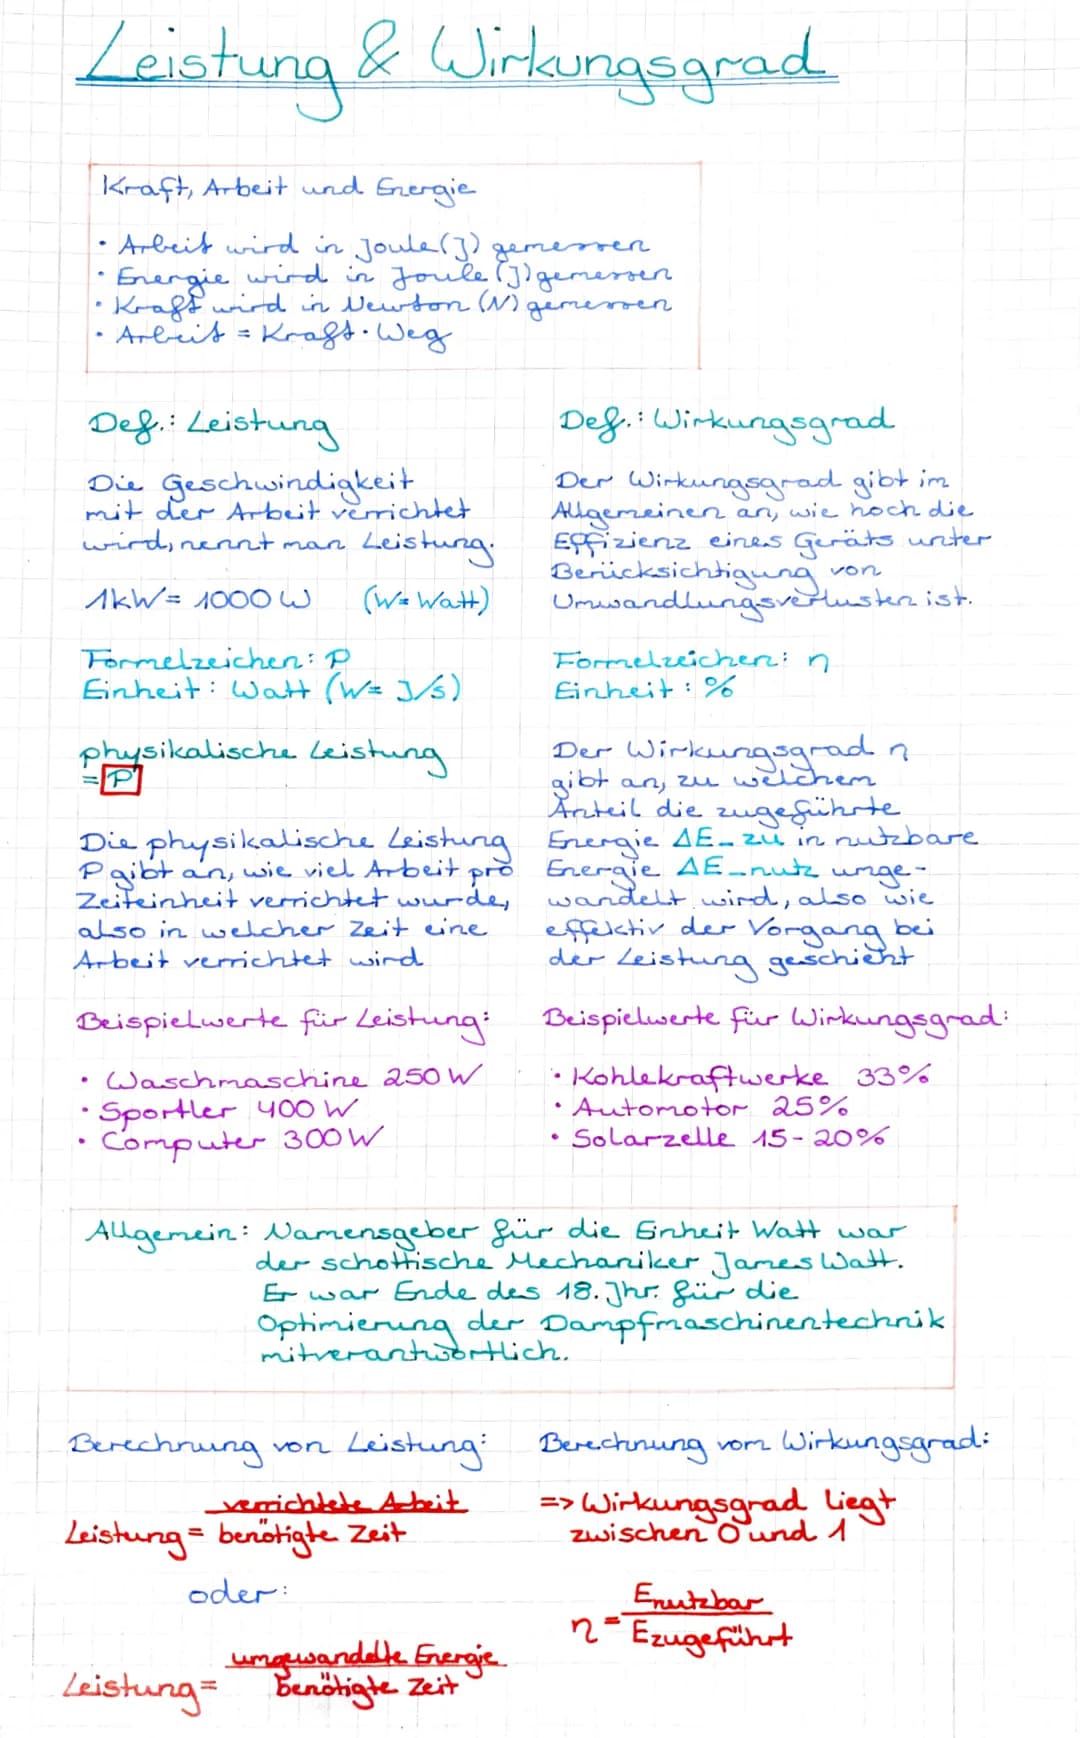 Leistung & Wirkungsgrad
Kraft, Arbeit und Energie
• Arbeit wird in Joule (J) gemessen
• Energie wird in Joule (J) gemessen
• Kraft wird in Newton (N) gemessen
• Arbeit = Kraft · Weg
Def.: Leistung
Die Geschwindigkeit
mit der Arbeit verrichtet
wird, nennt man Leistung.
1kW = 1000 W (W = Watt)
Formelzeichen: P
Einheit: Watt (W = J/s)
physikalische Leistung
= P
Die physikalische Leistung
P gibt an, wie viel Arbeit pro
Zeiteinheit verrichtet wurde,
also in welcher Zeit eine
Arbeit verrichtet wird
Beispielwerte für Leistung:
• Waschmaschine 250 W
• Sportler 400 W
• Computer 300 W
Def.: Wirkungsgrad
Der Wirkungsgrad gibt im
Allgemeinen an, wie hoch die
Effizienz eines Geräts unter
Berücksichtigung von
Umwandlungsverlusten ist.
Formelzeichen: η
Einheit: %
Der Wirkungsgrad η
gibt an, zu welchem
Anteil die zugeführte
Energie ΔE_zu in nutzbare
Energie ΔE_nutz umge-
wandelt wird, also wie
effektiv der Vorgang bei
der Leistung geschieht
Beispielwerte für Wirkungsgrad:
• Kohlekraftwerke 33%
• Automotor 25%
• Solarzelle 15-20%
Allgemein: Namensgeber für die Einheit Watt war
der schottische Mechaniker James Watt.
Er war Ende des 18. Jhr. für die
Optimierung der Dampfmaschinentechnik
mitverantwortlich.
Berechnung von Leistung:
verrichtete Arbeit
Leistung = benötigte Zeit
oder:
umgewandelte Energie
Leistung = benötigte Zeit
Berechnung vom Wirkungsgrad:
=> Wirkungsgrad liegt
zwischen 0 und 1
Enutzbar
η = Ezugeführt